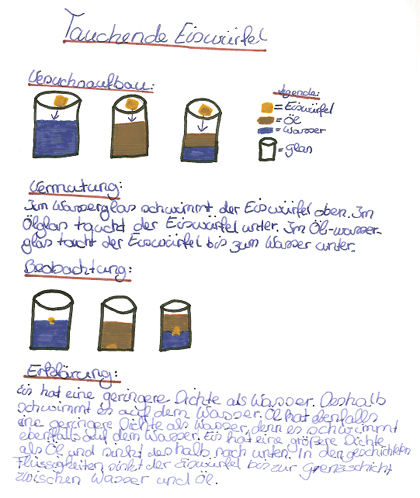 Tauchende Eiswürfel
Versuchsaufbau:
Legende:
= Eiswürfel
= Öl
= Wasser
= glas
Vermutung:
Im Wasserglas schwimmt der Eiswürfel oben. Im
Ölglas taucht der Eiswürfel unter. Im Öl-wasser-
glas taucht der Eiswürfel bis zum Wasser unter.
Beobachtung:
Erklärung:
Eis hat eine geringere Dichte als Wasser. Deshalb
schwimmt es auf dem Wasser. Öl hat ebenfalls
eine geringere Dichte als Wasser, denn es schwimmt
ebenfalls auf dem Wasser. Eis hat eine größere Dichte
als Öl und sinkt deshalb nach unten. In den geschichteten
Flüssigkeiten sinkt der Eiswürfel bis zur grenzschicht
zwischen Wasser und Öl.